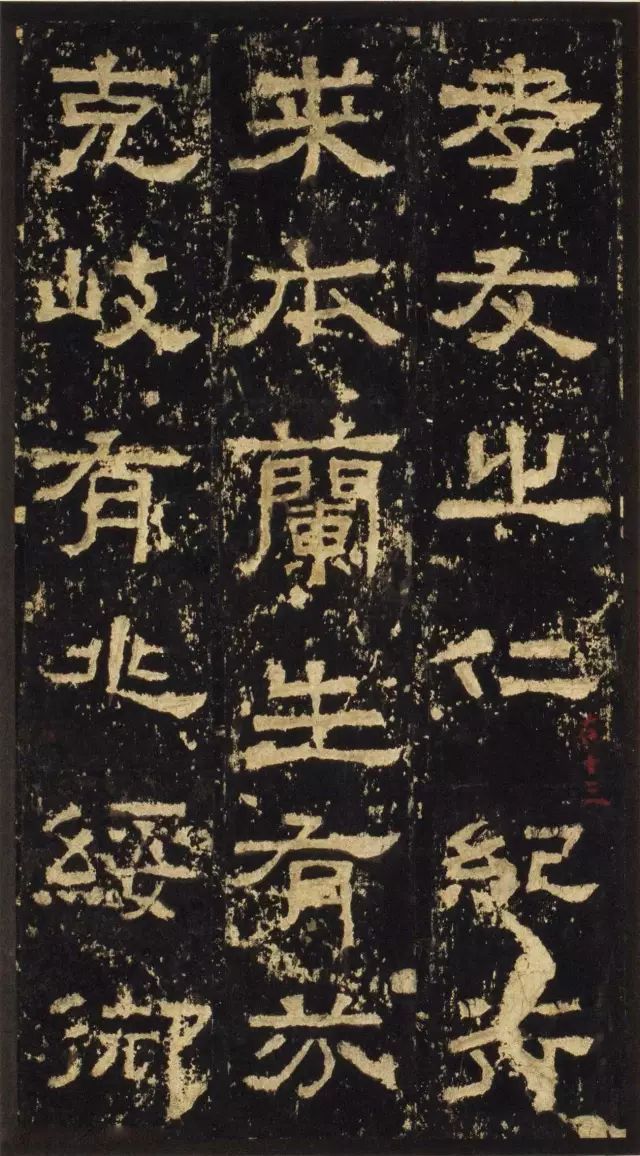 孝友之仁紀行
来本蘭生有芬
克岐有兆綏御